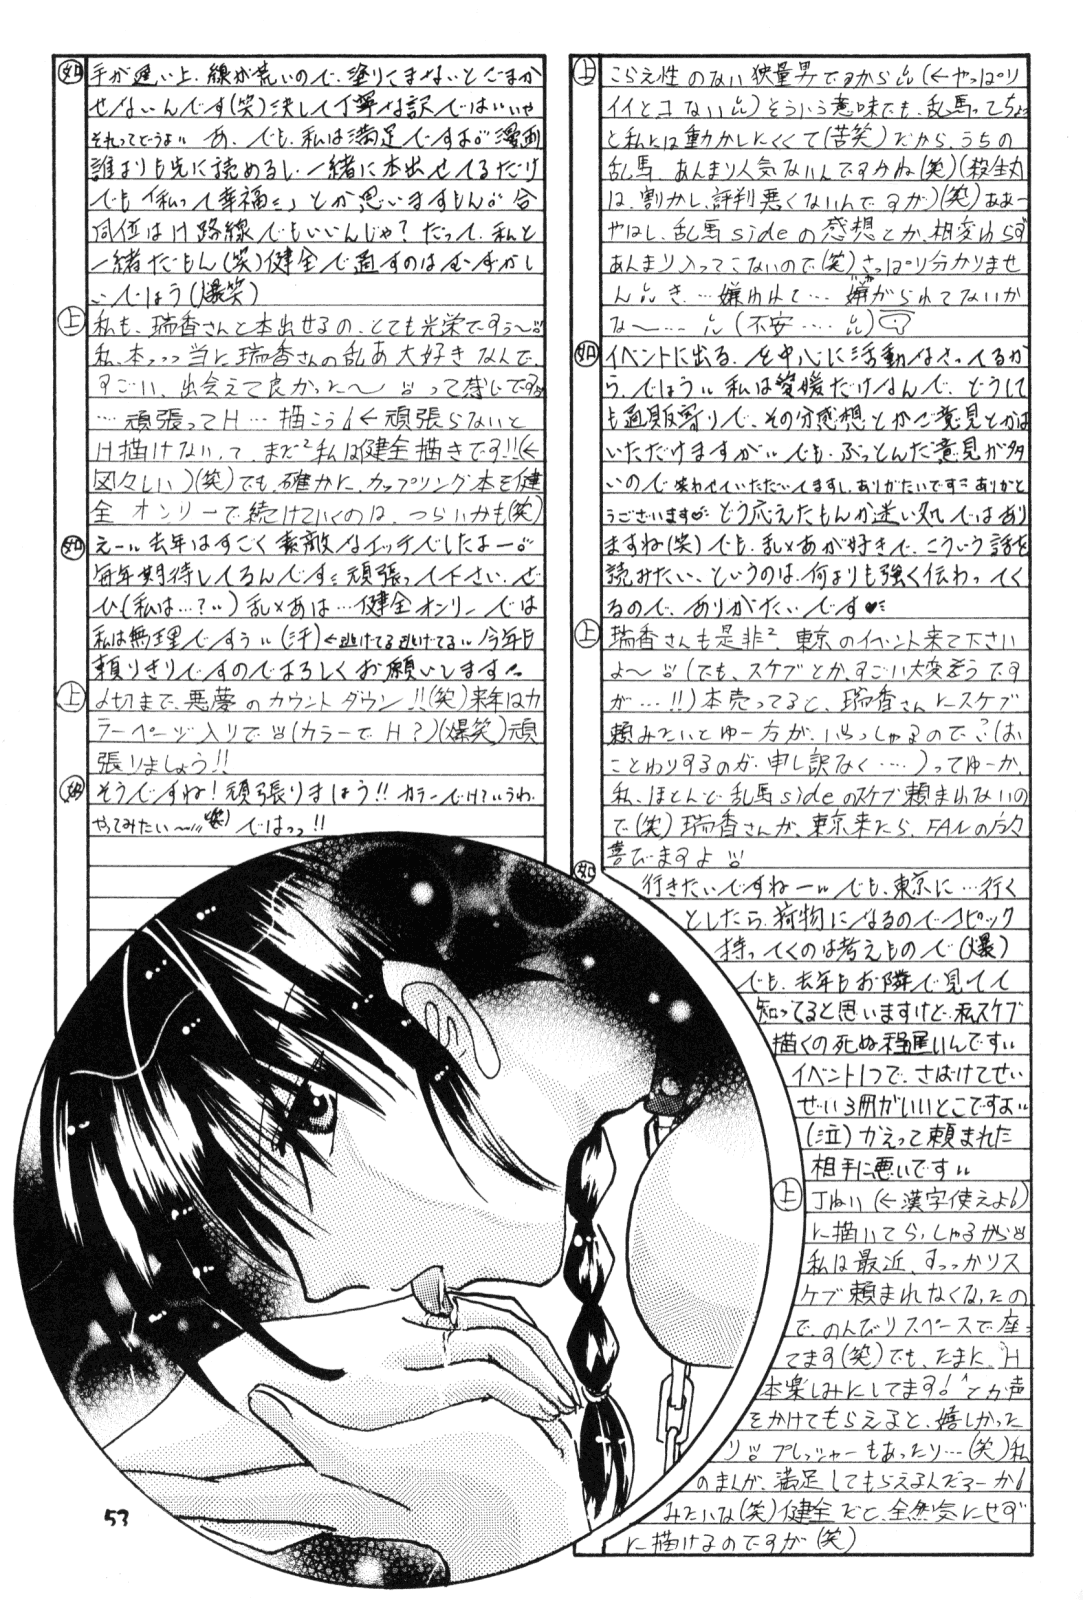 上 こらえ性のない狭量男ですから(←やっぱり
イイとコない)そういう意味でも、乱馬ってちょっ
と私には動かしにくくて(苦笑)だから、うちの
乱馬、あんまり人気ないんですかね(笑)(殺生丸
は、割かし、評判悪くないんですが)(笑)ああー
やはし、乱馬sideの感想とか、相変わらず
あんまり入ってこないので(笑)さっぱり分かりませ
ん き…嫌われて…嫌がられてないか
な〜…(不安‥‥)
如 イベントに出る、を中心に活動なさってるか
ら、でしょう 私は愛媛だけなんで、どうして
も通販寄りで、その分感想とかご意見とかは
いただけますが でも、ぶっとんだ意見が多
いので笑わせていただいてますし、ありがたいです ありがと
うございます どう応えたもんか迷い処ではあり
ますね(笑)でも、乱×あが好きで、こういう話を
読みたい、というのは、何よりも強く伝わってく
るので、ありがたいです♥
上 瑞香さんも是非²、東京のイベント来て下さい
よ〜(でも、スケブとか、すごい大変そうです
が…!!)本売ってると、瑞香さんにスケブ
頼みたいとゆー方が、いらっしゃるので(お
ことわりするのが、申し訳なく‥‥)ってゆーか、
私、ほとんど乱馬sideのスケブ頼まれないの
で(笑)瑞香さんが、東京来たら、FANの方々
喜びますよ
如 行きたいですねー でも、東京に…行く
としたら、荷物になるのでコピック
持ってくのは考えもので(爆)
でも、去年もお隣で見てて
知ってると思いますけど、私スケブ
描くの死ぬ程遅いんです
イベント1つで、さばけてせい
ぜい3冊がいいとこですよ
(泣)かえって頼まれた
相手に悪いです
上 丁ねい(←漢字使えよ!)
に描いてらっしゃるから
私は最近、すっっかりス
ケブ頼まれなくなったの
で、のんびりスペースで座っ
てます(笑)でも、たまに、H
本楽しみにしてます!とか声
をかけてもらえると、嬉しかった
り プレッシャーもあったり…(笑)私
のまんが、満足してもらえるんだろーか!
みたいな(笑)健全だと、全然気にせず
に描けるのですが(笑)
如 手が遅い上、線が荒いので、塗りこまないとごまか
せないんです(笑)決して丁寧な訳ではいいや
それってどうよ あ、でも、私は満足ですよ 漫画
誰よりも先に読めるし、一緒に本出せてるだけ
でも「私って幸福」とか思いますもん 合
同位はH路線でもいいんじゃ?だって、私と
一緒だもん(笑)健全で通すのはむずかし
いでしょう(爆笑)
上 私も、瑞香さんと本出せるの、とても光栄ですぅ〜
私、本っっっ当に瑞香さんの乱あ大好きなんで、
すごい、出会えて良かった〜って感じです
…頑張ってH…描こう!←頑張らないと
H描けない、って、まだ²私は健全描きです!!(←
図々しい)(笑)でも、確かに、カップリング本を健
全オンリーで続けていくのは、つらいかも(笑)
如 えー 去年はすごく素敵なエッチでしたよー
毎年期待してるんです 頑張って下さい、ぜ
ひ(私は…?)乱×あは…健全オンリーでは
私は無理ですぅ(汗)←逃げてる逃げてる 今年も
頼りきりですのでよろしくお願いします
上 〆切まで、悪夢のカウントダウン!!(笑)来年はカ
ラーページ入りで(カラーでH?)(爆笑)頑
張りましょう!!
如 そうですね!頑張りましょう!! カラーでH?いうわ、
やってみたい〜(笑)ではっっ!!
53